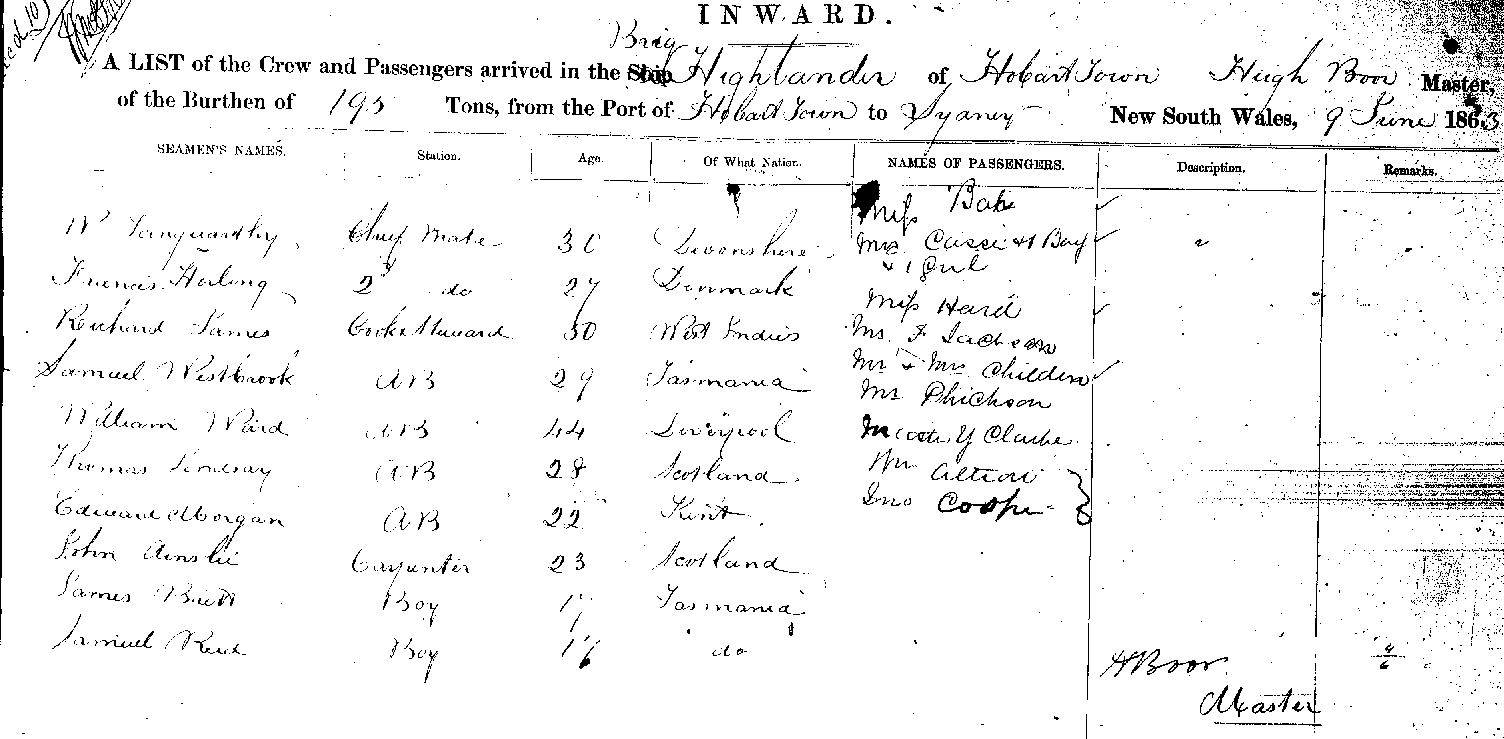 INWARD.
Brig
A LIST of the Crew and Passengers arrived in the Ship Highlander of Hobart Town Hugh Boor Master,
of the Burthen of 195 Tons, from the Port of Hobart Town to Sydney New South Wales, 9 June 1863
SEAMEN'S NAMES. Station. Age. Of What Nation. NAMES OF PASSENGERS. Description. Remarks.
Miss
W Chief Mate 30 Devonshire Mrs & Boy
& 1 Girl
Francis 2d do 27 Denmark Miss
Richard James Cook & Steward 30 West Indies F Jackson
Samuel Westbrook AB 29 Tasmania Mr & Mrs
William Ward AB 44 Liverpool Clarke
Thomas Lindsay AB 28 Scotland
Edward Morgan AB 22 Kent Jno Cooper
John Ainslie Carpenter 23 Scotland
James Boy 17 Tasmania
Samuel Reid Boy 16 do
H Boor
Master
4/6